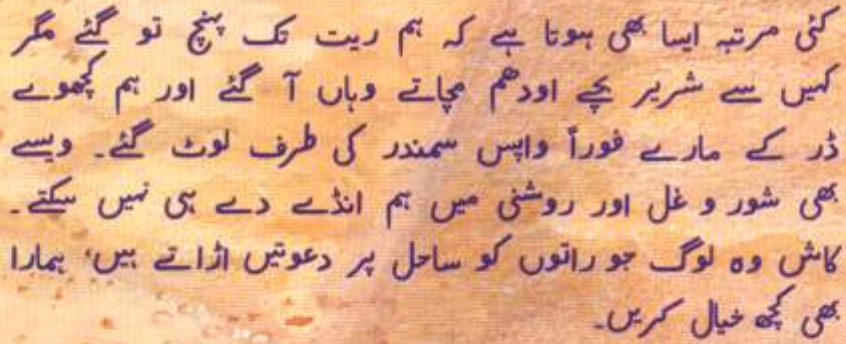 کئی مرتبہ ایسا بھی ہوتا ہے کہ ہم ریت تک پہنچ تو گئے مگر
کہیں سے شریر بچے اودھم مچاتے وہاں آ گئے اور ہم کچھوے
ڈر کے مارے فوراً واپس سمندر کی طرف لوٹ گئے۔ ویسے
بھی شور و غل اور روشنی میں ہم انڈے دے ہی نہیں سکتے۔
کاش وہ لوگ جو راتوں کو ساحل پر دعوتیں اڑاتے ہیں، ہمارا
بھی کچھ خیال کریں۔